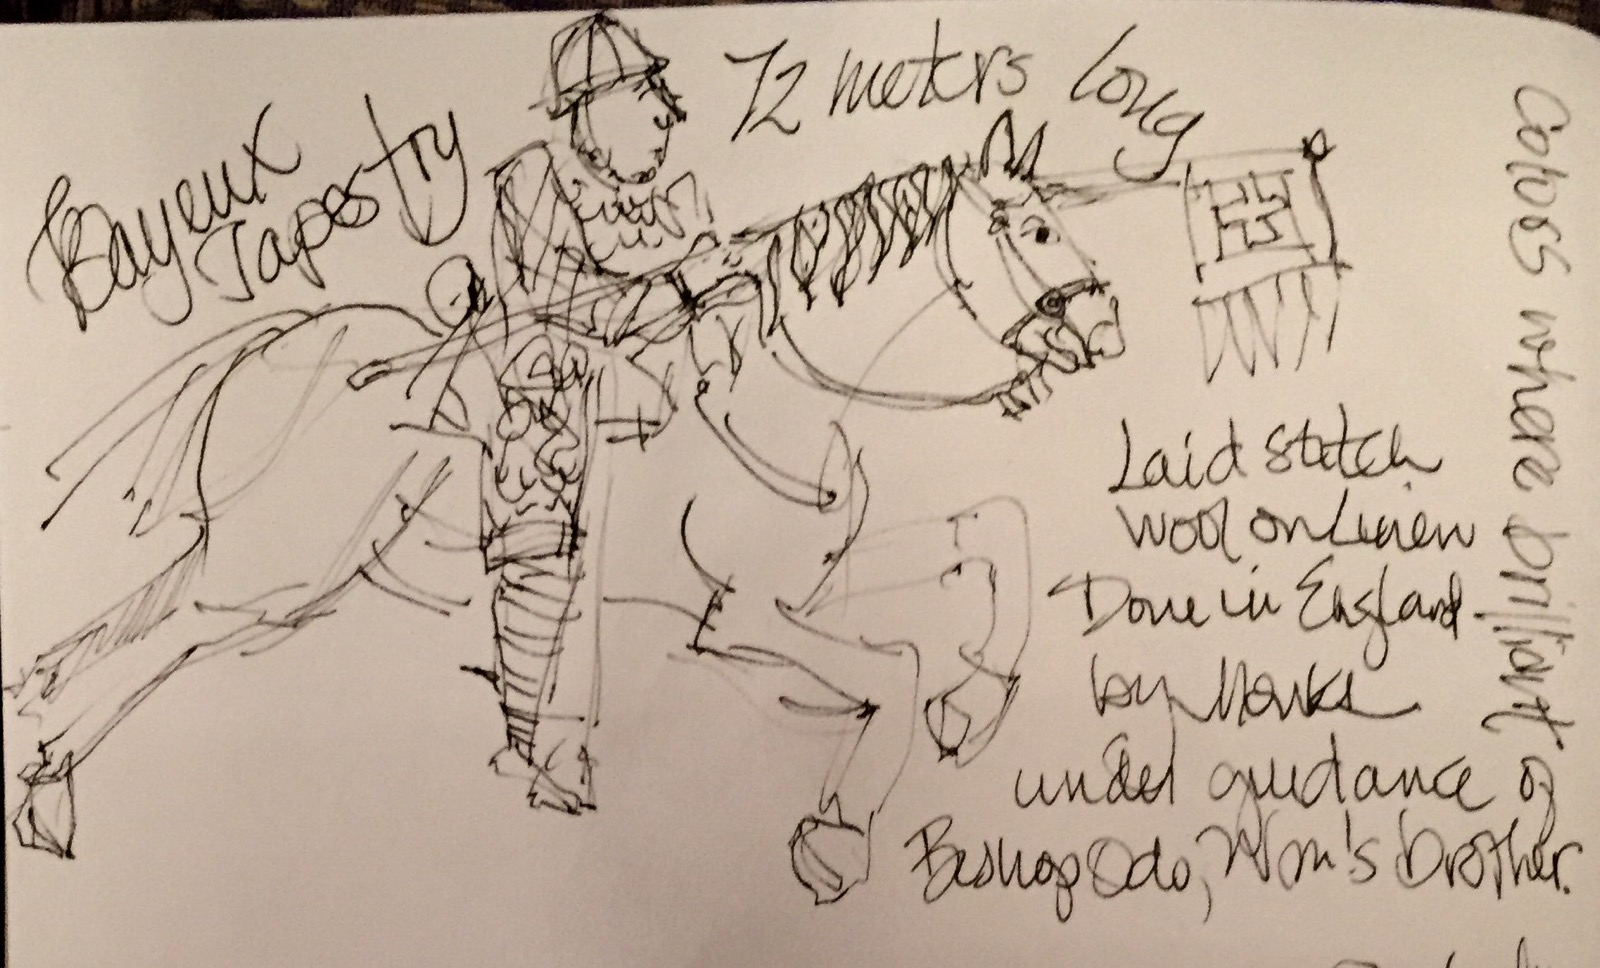 Bayeux
Tapestry
72 meters long
Laid stitch
wool on Linen
Done in England
by Monks
under guidance of
Bishop Odo, Wm's brother.
Colors where brilliant